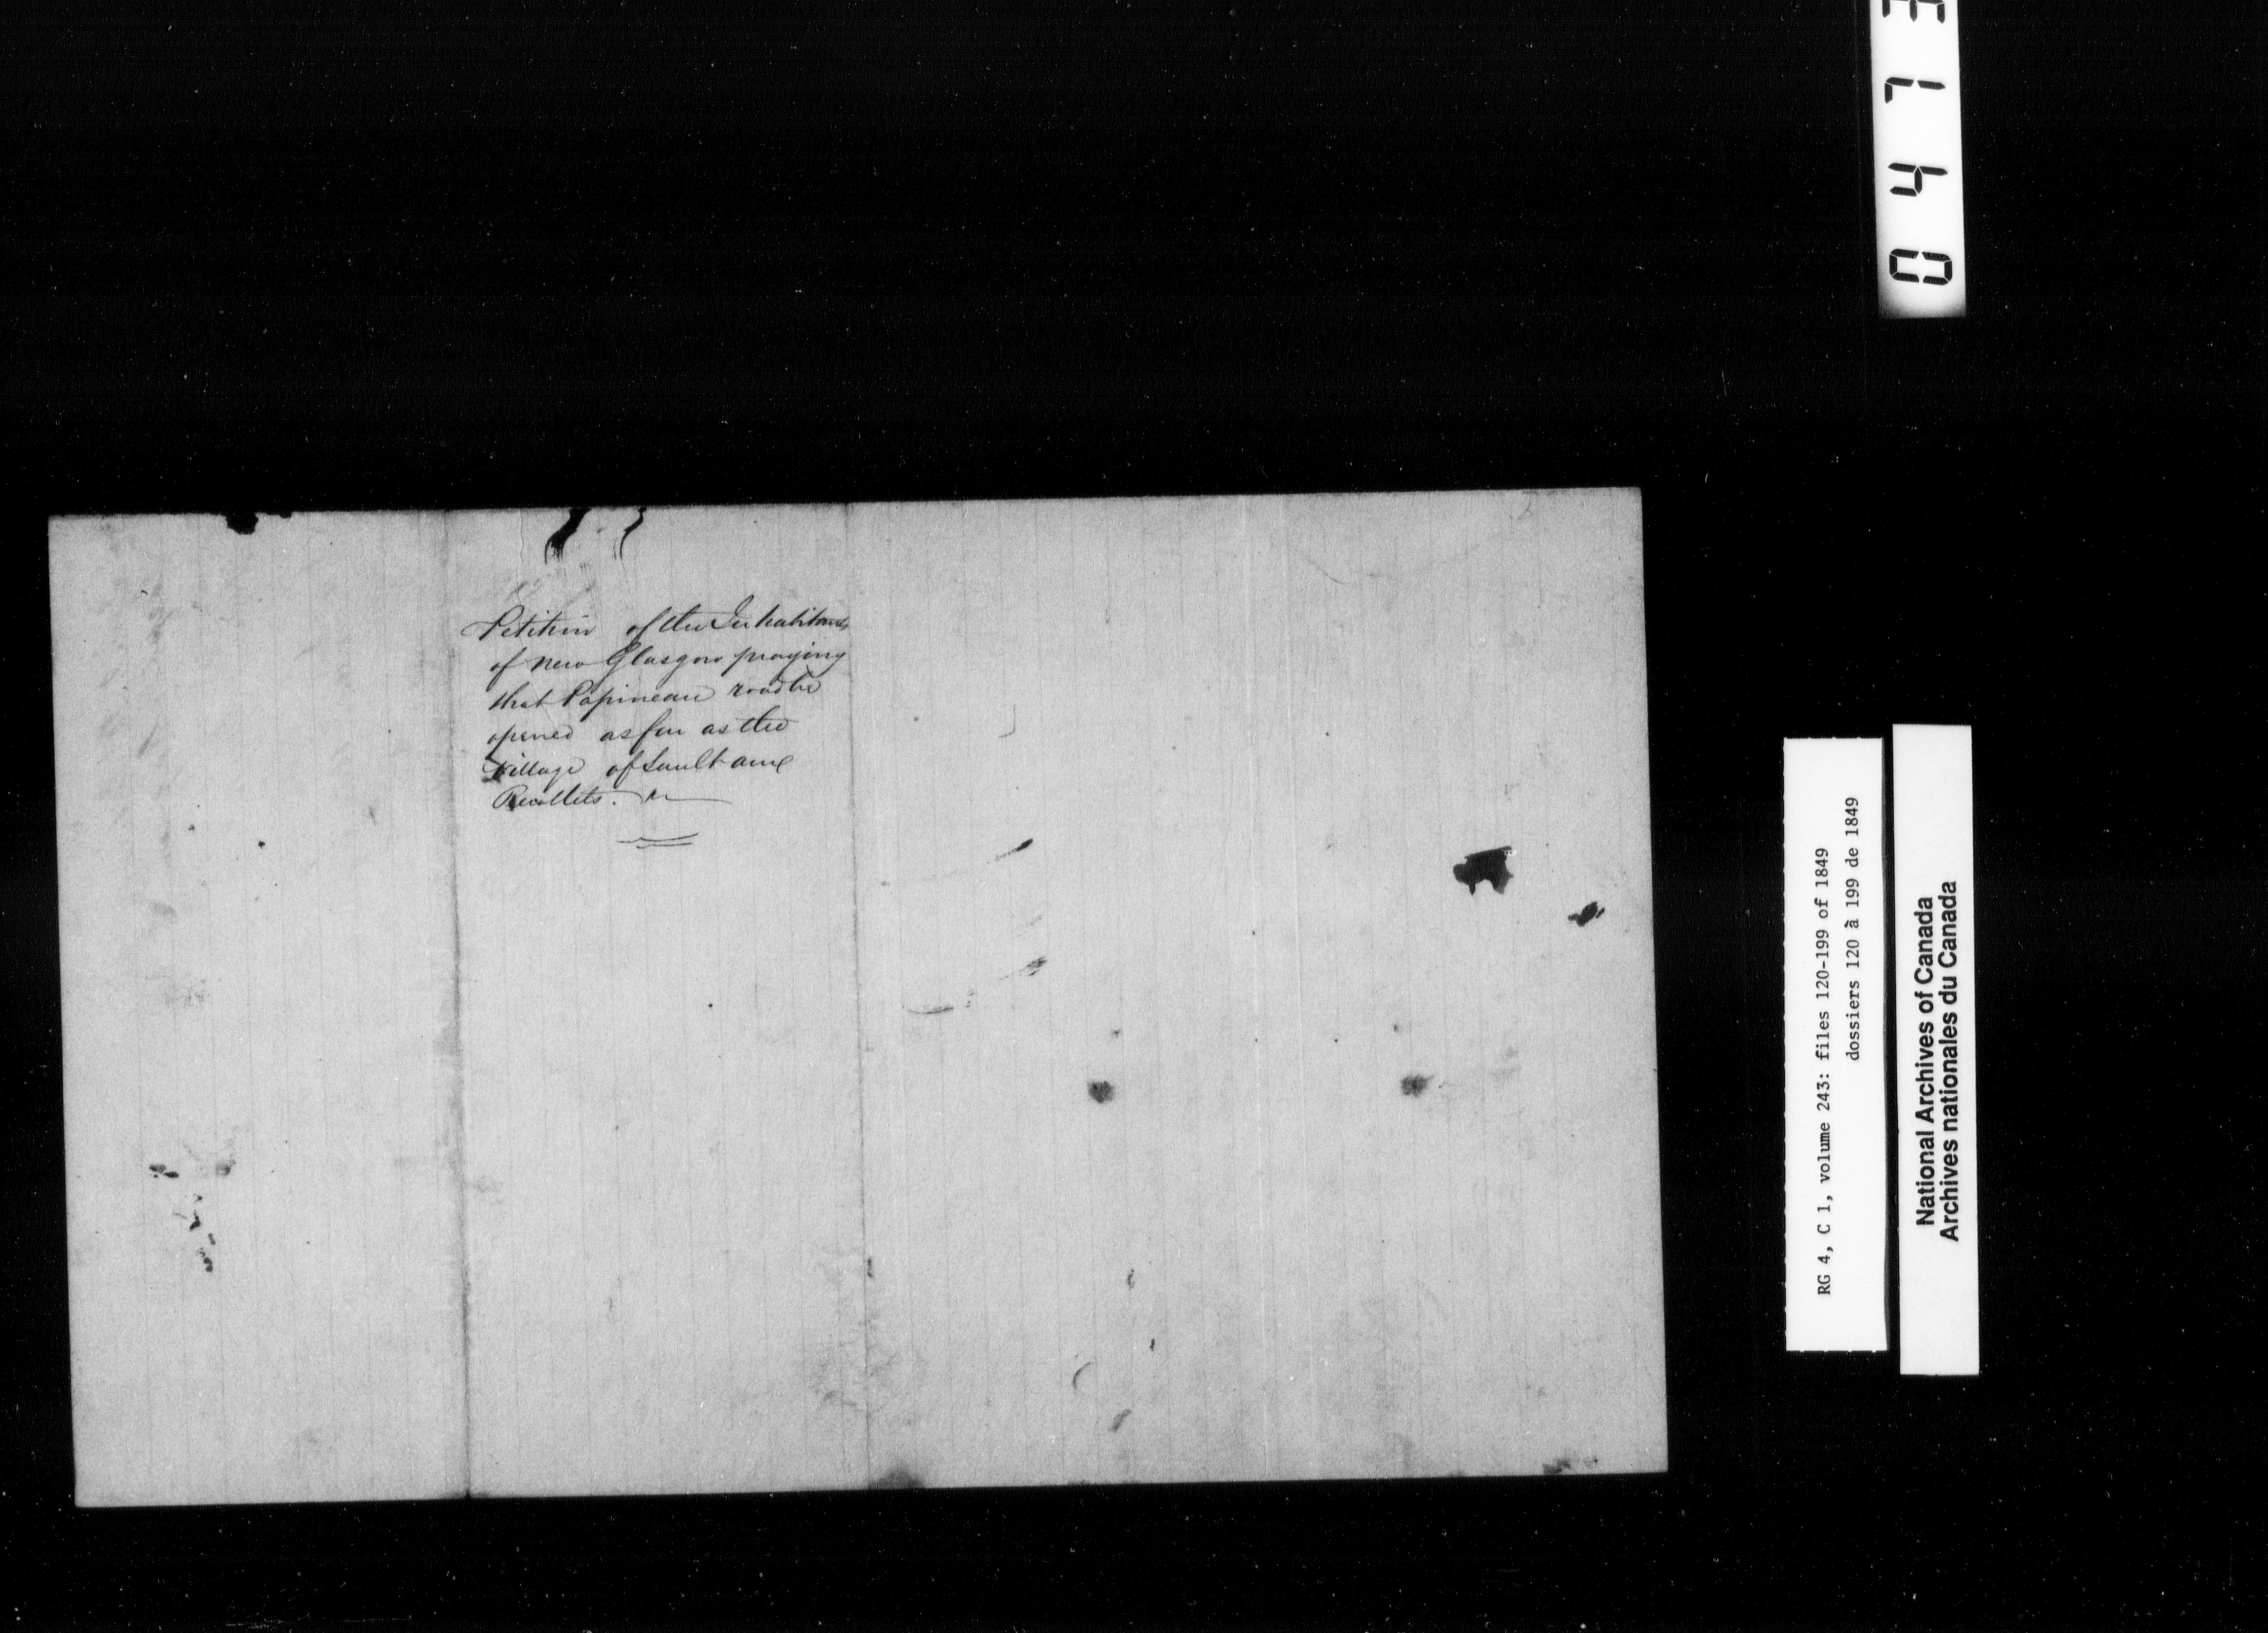 Petition of the Inhabitants
of New Glasgow praying
that Papineau road be
opened as far as the
Village of Sault aux
Recollets.
0473
RG 4, C 1, volume 243: files 120-199 of 1849
dossiers 120 à 199 de 1849
National Archives of Canada
Archives nationales du Canada